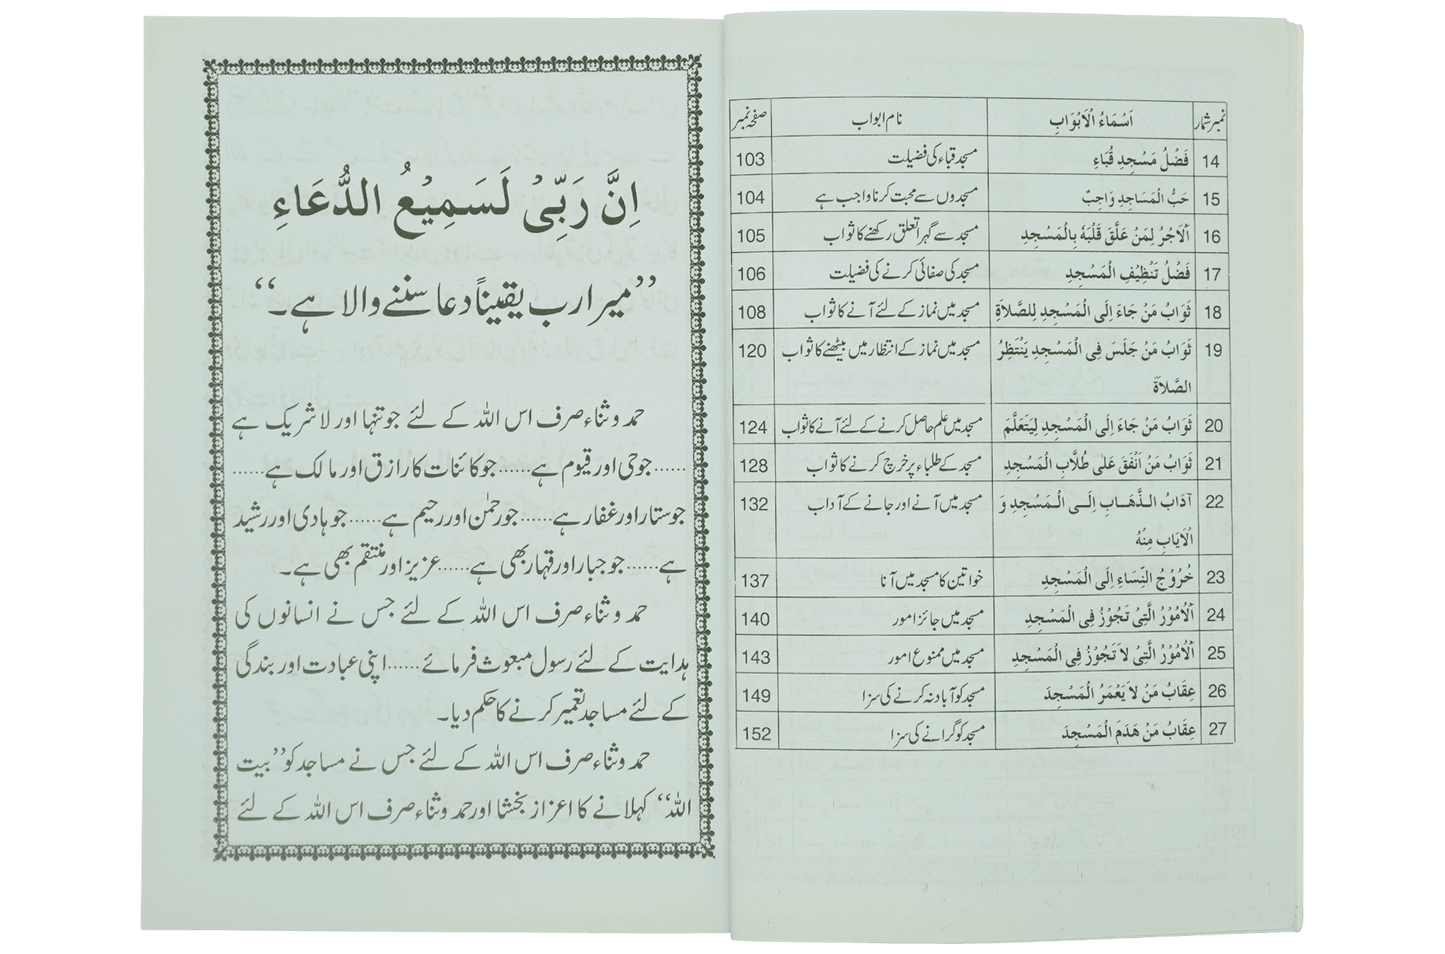 نمبر شمار | اَسْمَاءُ الْاَبْوَابِ | نام ابواب | صفحہ نمبر
14 | فَضْلُ مَسْجِدِ قُبَاءِ | مسجد قباء کی فضیلت | 103
15 | حَبُّ الْمَسَاجِدِ وَاجِبٌ | مسجدوں سے محبت کرنا واجب ہے | 104
16 | اَلْاَجْرُ لِمَنْ عَلَّقَ قَلْبَهٗ بِالْمَسْجِدِ | مسجد سے گہرا تعلق رکھنے کا ثواب | 105
17 | فَضْلُ تَنْظِيْفِ الْمَسْجِدِ | مسجد کی صفائی کرنے کی فضیلت | 106
18 | ثَوَابُ مَنْ جَاءَ اِلَى الْمَسْجِدِ لِلصَّلاَةِ | مسجد میں نماز کے لئے آنے کا ثواب | 108
19 | ثَوَابُ مَنْ جَلَسَ فِى الْمَسْجِدِ يَنْتَظِرُ | مسجد میں نماز کے انتظار میں بیٹھنے کا ثواب | 120
الصَّلاَةَ
20 | ثَوَابُ مَنْ جَاءَ اِلَى الْمَسْجِدِ لِيَتَعَلَّمَ | مسجد میں علم حاصل کرنے کے لئے آنے کا ثواب | 124
21 | ثَوَابُ مَنْ اَنْفَقَ عَلٰى طُلَّابِ الْمَسْجِدِ | مسجد کے طلباء پر خرچ کرنے کا ثواب | 128
22 | آدَابُ الذَّهَابِ اِلَى الْمَسْجِدِ وَ | مسجد میں آنے اور جانے کے آداب | 132
الْاَيَابِ مِنْهُ
23 | خُرُوْجُ النِّسَاءِ اِلَى الْمَسْجِدِ | خواتین کا مسجد میں آنا | 137
24 | اَلْاُمُوْرُ الَّتِىْ تَجُوْزُ فِى الْمَسْجِدِ | مسجد میں جائز امور | 140
25 | اَلْاُمُوْرُ الَّتِىْ لاَ تَجُوْزُ فِى الْمَسْجِدِ | مسجد میں ممنوع امور | 143
26 | عِقَابُ مَنْ لاَ يَعْمَرُ الْمَسْجِدَ | مسجد کو آباد نہ کرنے کی سزا | 149
27 | عِقَابُ مَنْ هَدَمَ الْمَسْجِدَ | مسجد کو گرانے کی سزا | 152
اِنَّ رَبِّىْ لَسَمِيْعُ الدُّعَاءِ
”میرا رب یقیناً دعا سننے والا ہے۔“
حمد و ثناء صرف اس اللہ کے لئے جو تنہا اور لاشریک ہے
......جو حی اور قیوم ہے......جو کائنات کا رازق اور مالک ہے......
جو ستار اور غفار ہے......جو رحمٰن اور رحیم ہے......جو ہادی اور رشید
ہے......جو جبار اور قہار بھی ہے......عزیز اور منتقم بھی ہے۔
حمد و ثناء صرف اس اللہ کے لئے جس نے انسانوں کی
ہدایت کے لئے رسول مبعوث فرمائے......اپنی عبادت اور بندگی
کے لئے مساجد تعمیر کرنے کا حکم دیا۔
حمد و ثناء صرف اس اللہ کے لئے جس نے مساجد کو ”بیت
اللہ“ کہلانے کا اعزاز بخشا اور حمد و ثناء صرف اس اللہ کے لئے